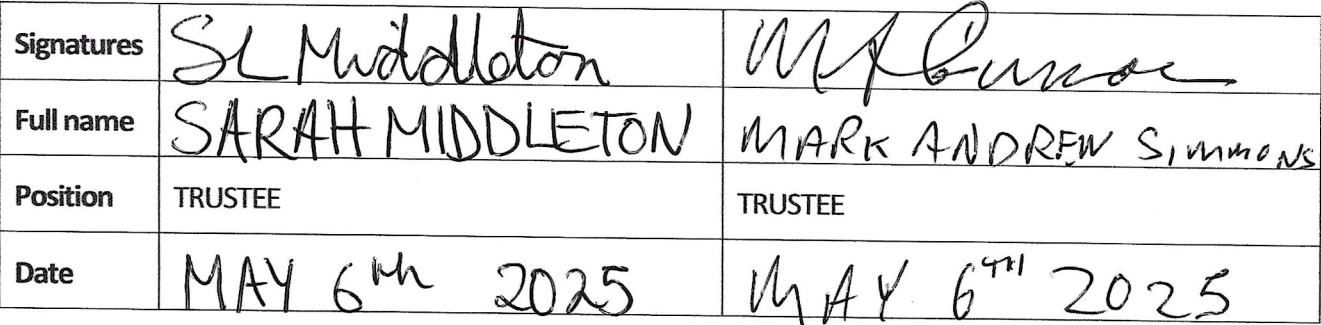 Signatures SL Middleton
Full name SARAH MIDDLETON MARK ANDREW SIMMONS
Position TRUSTEE TRUSTEE
Date MAY 6th 2025 MAY 6TH 2025